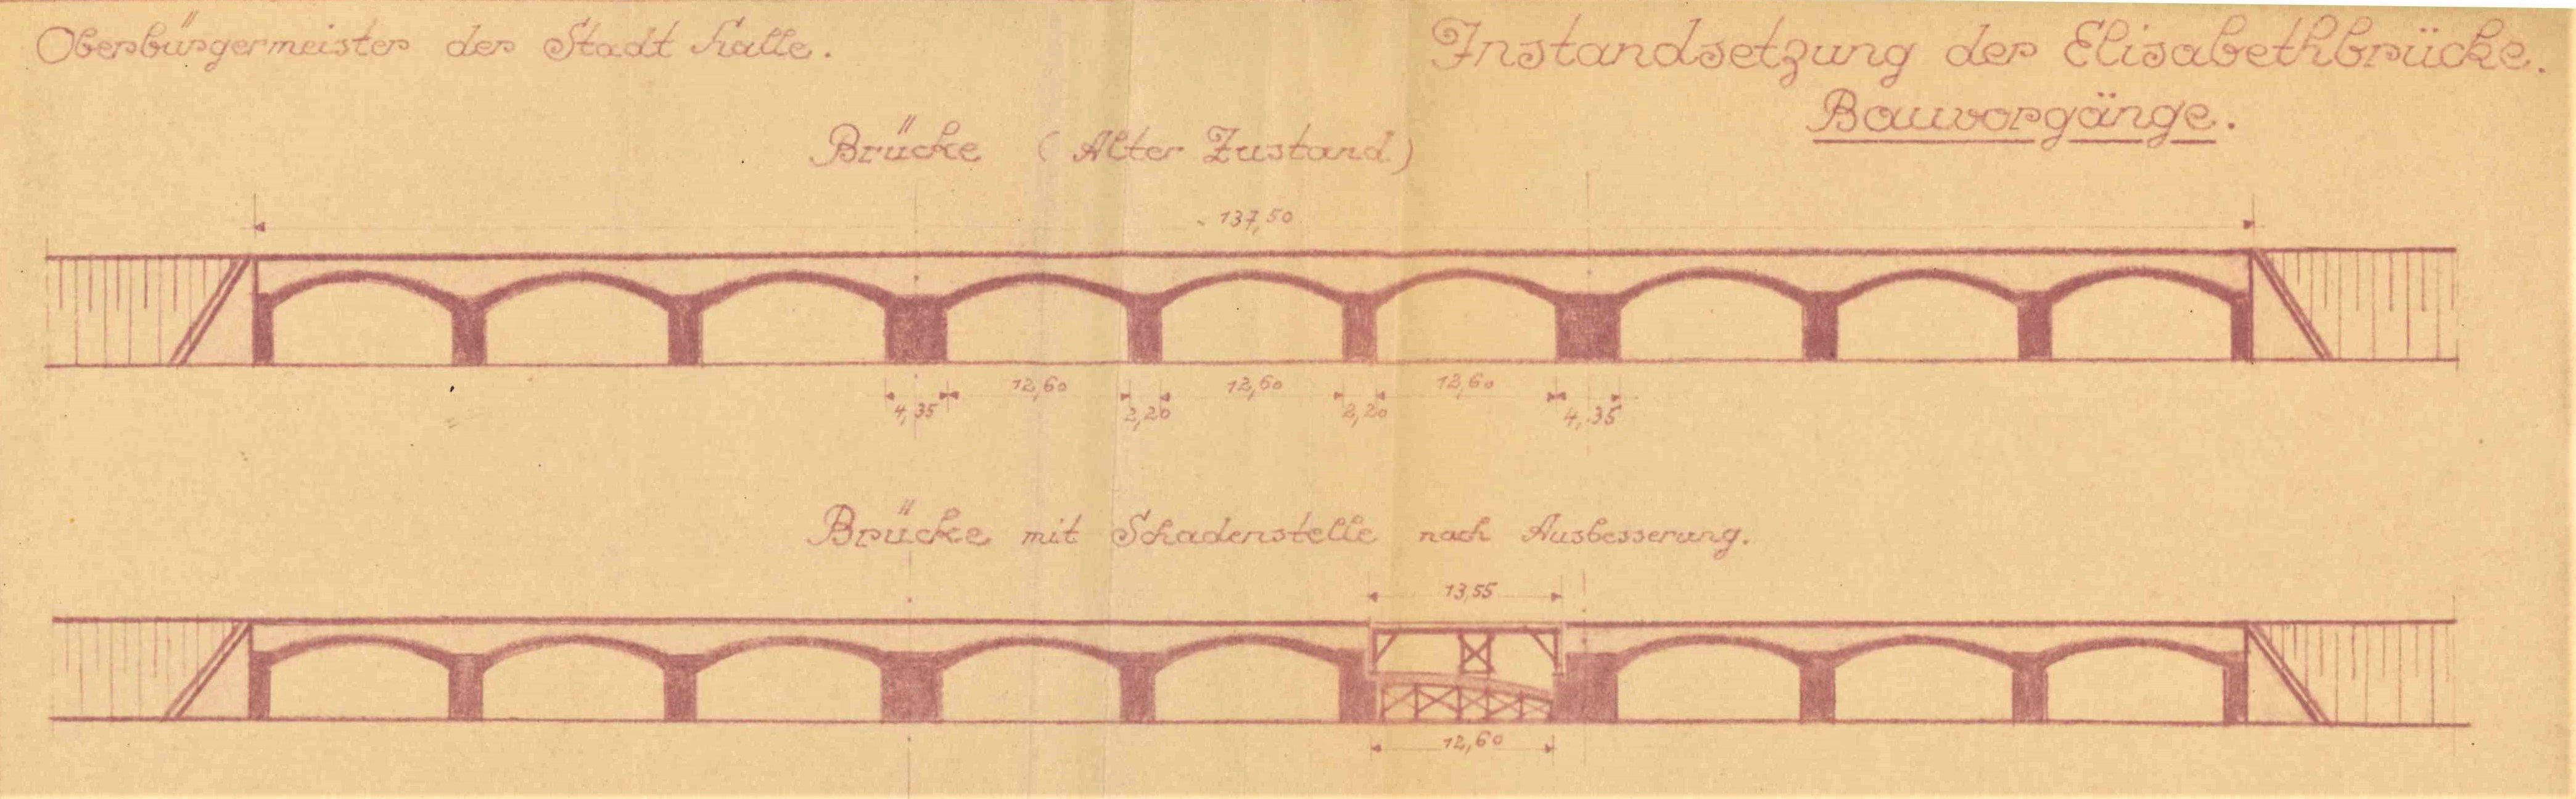 Oberbürgermeister der Stadt Halle.
Instandsetzung der Elisabethbrücke.
Bauvorgänge.
Brücke (Alter Zustand)
~ 137,50
12,60 12,60 12,60
4,35 2,20 2,20 4,35
Brücke mit Schadenstelle nach Ausbesserung.
13,55
12,60